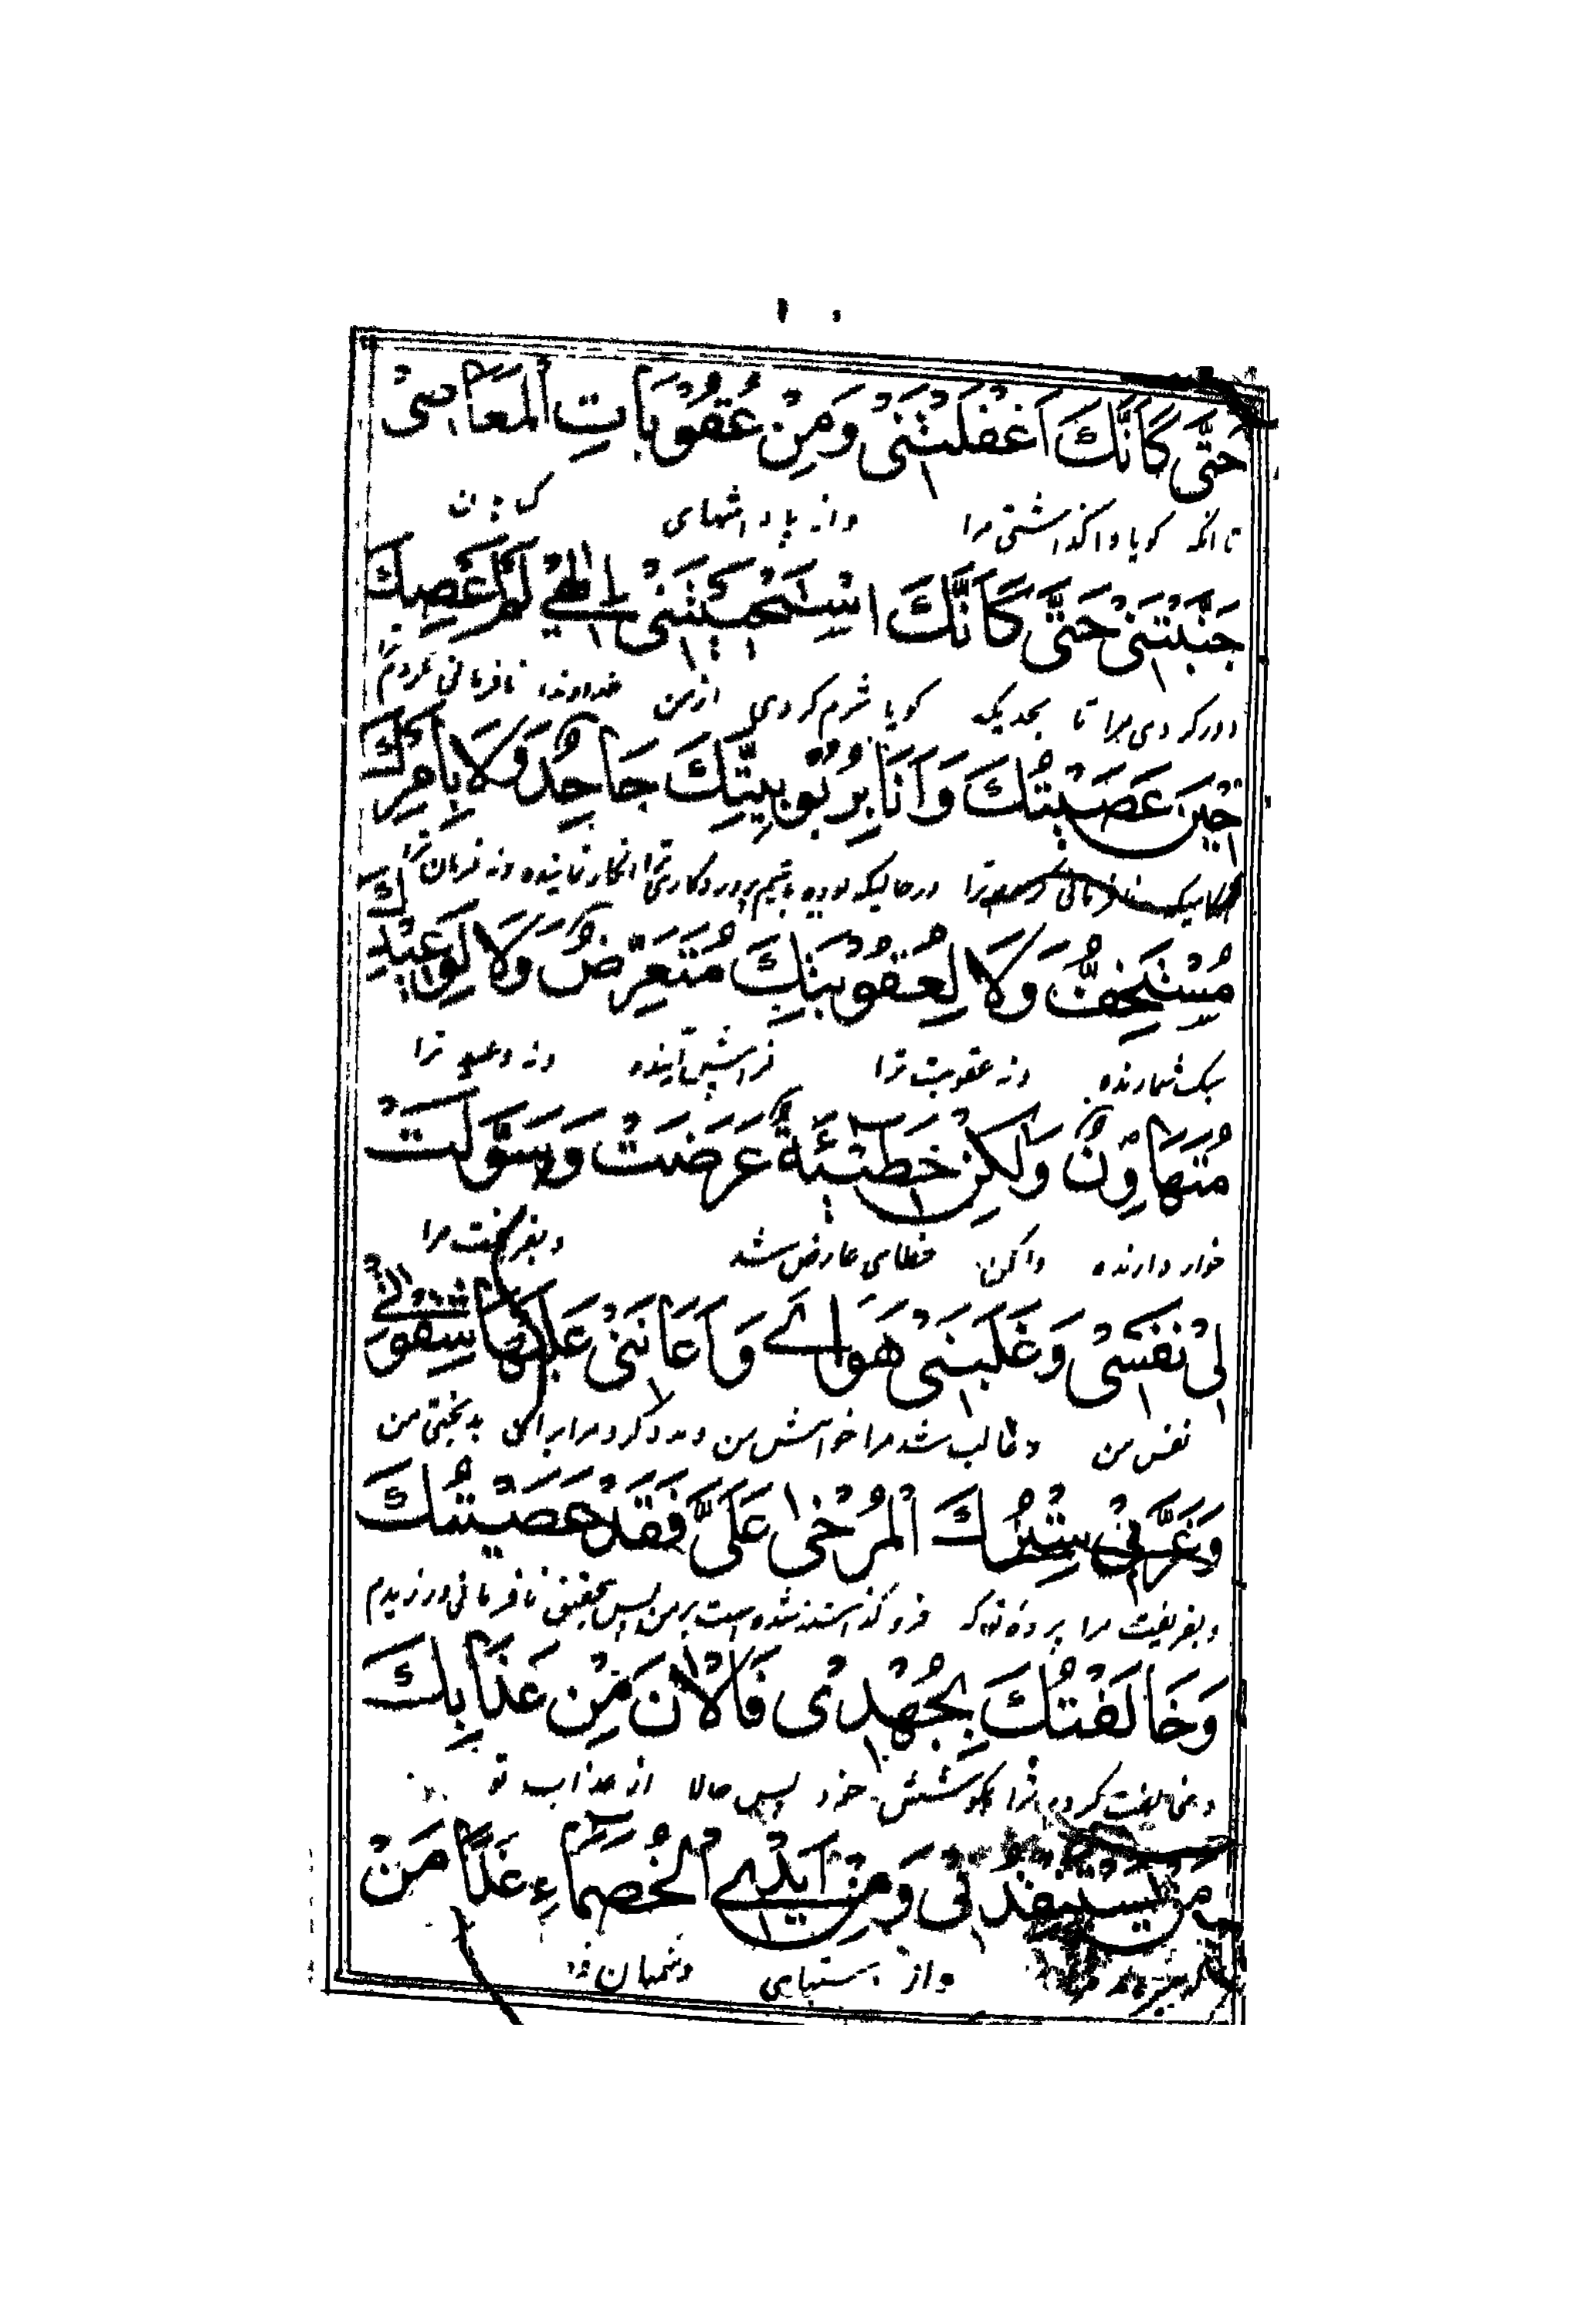 حَتّٰى كَاَنَّكَ اَغْفَلْتَنٖى وَمِنْ عُقُوْبَاتِ الْمَعَاصٖى
تا انکه کویا واکذاشتی مرا وانه پاداشهای
جَنَّبْتَنٖى حَتّٰى كَاَنَّكَ اسْتَحْيَيْتَنٖى اِلٰهٖى لَمْ اَعْصِكَ
دور کردی مرا تا بحدیکه کویا شرم کردی از من خداوندا نافرمانی نکردم
حٖيْنَ عَصَيْتُكَ وَاَنَا بِرُبُوْبِيَّتِكَ جَاحِدٌ وَلَا بِاَمْرِكَ
نافرمانی ترا در حالیکه بوده باشم پروردکاری ترا انکار نماینده ونه فرمان ترا
مُسْتَخِفٌّ وَلَا لِعُقُوْبَتِكَ مُتَعَرِّضٌ وَلَا لِوَعٖيْدِكَ
سبک شمارنده ونه عقوبت ترا فرا پیش آینده ونه وعید ترا
مُتَهَاوِنٌ وَلٰكِنْ خَطٖيْئَةٌ عَرَضَتْ وَسَوَّلَتْ
خوار دارنده ولکن خطای عارض شد وبفریفت مرا
لٖىْ نَفْسٖىْ وَغَلَبَنٖى هَوَاىَ وَاَعَانَنٖى عَلَيْهَا شِقْوَتٖى
نفس من وغالب شد مرا خواهش من ومدد کرد مرا بر آن بدبختی من
وَغَرَّنٖى سِتْرُكَ الْمُرْخٰى عَلَىَّ فَقَدْ عَصَيْتُكَ
وبفریفت مرا پرده تو که فرو کذاشته شده است بر من پس بتحقیق نافرمانی ورزیدم
وَخَالَفْتُكَ بِجُهْدٖى فَالْاٰنَ مِنْ عَذَابِكَ
ومخالفت کردم ترا بکوشش خود پس حالا از عذاب تو
مَنْ يَسْتَنْقِذُنٖى وَمِنْ اَيْدِى الْخُصَمَاءِ غَدًا مَنْ
واز دستهای دشمنان فردا